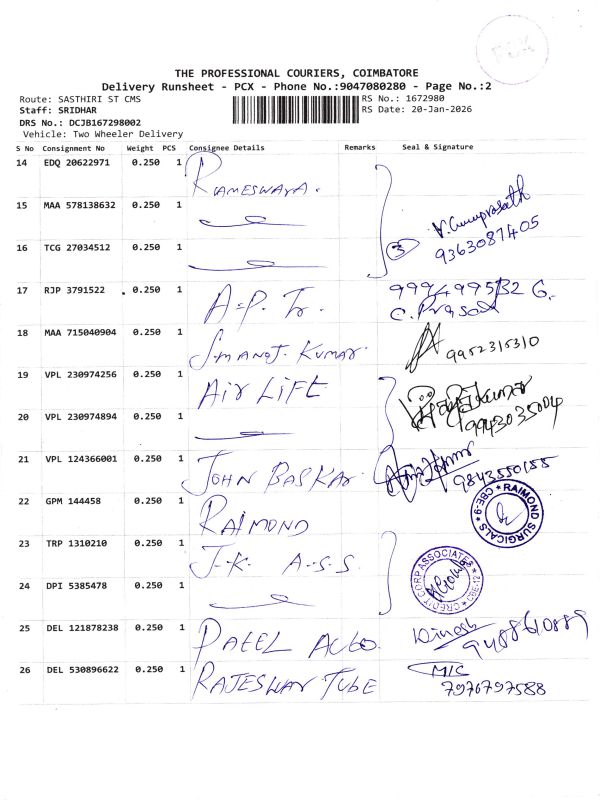 POX
THE PROFESSIONAL COURIERS, COIMBATORE
Delivery Runsheet - PCX - Phone No.:9047080280 - Page No.:2
Route: SASTHIRI ST CMS RS No.: 1672980
Staff: SRIDHAR RS Date: 20-Jan-2026
DRS No.: DCJB167298002
Vehicle: Two Wheeler Delivery
S No Consignment No Weight PCS Consignee Details Remarks Seal & Signature
14 EDQ 20622971 0.250 1 RAMESWARA.
15 MAA 578138632 0.250 1 V. Guruprasath
16 TCG 27034512 0.250 1 3 9363087405
17 RJP 3791522 0.250 1 A.P. Tr. G.
C. Prasad
18 MAA 715040904 0.250 1 J.MANOJ. KUMAR. 9952315310
19 VPL 230974256 0.250 1 AIR LIFT
20 VPL 230974894 0.250 1 9943035004
21 VPL 124366001 0.250 1 JOHN BASKAR 9843550155
22 GPM 144458 0.250 1 RAIMOND RAIMOND SURGICALS CBE-9
23 TRP 1310210 0.250 1 J.K. A.S.S. CREDIT CORP ASSOCIATES CBE-12
24 DPI 5385478 0.250 1
25 DEL 121878238 0.250 1 PATEL AUTO Dinesh 9488610889
26 DEL 530896622 0.250 1 RAJESWARI TUBE M/C
7976797588